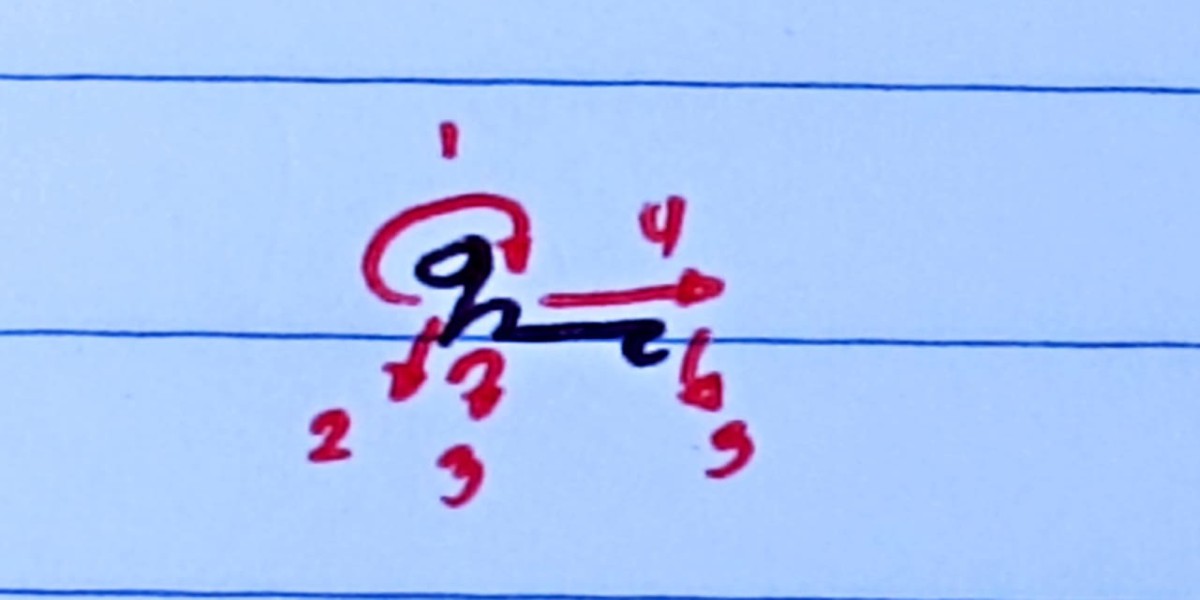 1
4
2 3 5